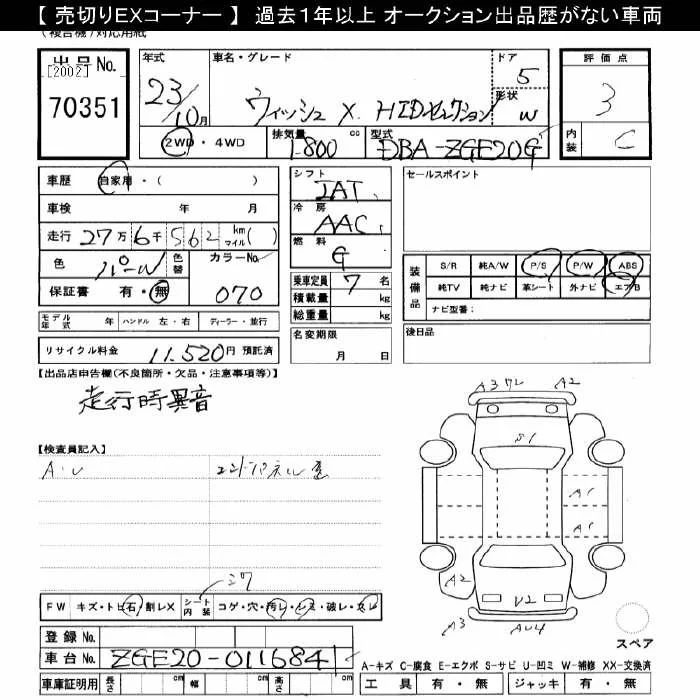 【 売切りEXコーナー 】 過去1年以上 オークション出品歴がない車両
(複合機)対応用紙
出品No.
[2002]
70351
年式 車名・グレード ドア 評価点
23/10月 ウィッシュ X. HIDセレクション 5 3
形状 W
2WD・4WD 排気量 1.800 cc 型式 DBA-ZGE20G 内装 C
車歴 自家用・( )
車検 年 月
走行 27万6千562 km マイル( )
色 パール 色替 カラーNo. 070
保証書 有・無
モデル年式 年 ハンドル 左・右 ディーラー・並行
リサイクル料金 11.520円 預託済
シフト IAT
冷房 AAC
燃料 G
乗車定員 7 名
積載量 kg
総重量 kg
名変期限 月 日
セールスポイント
装備品 S/R 純A/W P/S P/W ABS
純TV 純ナビ 革シート 外ナビ エアB
ナビ型番:
後日品
【出品店申告欄(不良箇所・欠品・注意事項等)】
走行時異音
【検査員記入】
A・U
A3 ワレ A2
S1
A1
A1
A2
U2
A3
AU4
スペア
FW キズ・トビ石/割レX シート内装 コゲ・穴・汚レ・シミ・破レ・スレ
登録No.
車台No. ZGE20-0116841
車庫証明用 長さ cm 幅 cm 高さ cm
A-キズ C-腐食 E-エクボ S-サビ U-凹ミ W-補修 XX-交換済
工具 有・無 ジャッキ 有・無